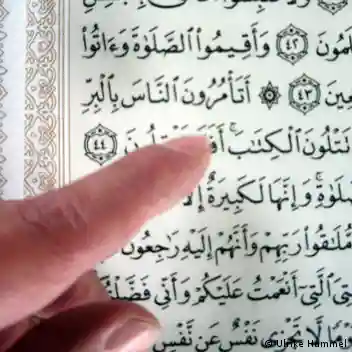 لَمُونَ ٤٢ وَأَقِيمُوا۟ ٱلصَّلَوٰةَ وَءَاتُوا۟
عِينَ ٤٣ ۞ أَتَأْمُرُونَ ٱلنَّاسَ بِٱلْبِرِّ
تَتْلُونَ ٱلْكِتَٰبَ ۚ ٤٤
صَّلَوٰةِ ۚ وَإِنَّهَا لَكَبِيرَةٌ
مُّلَٰقُوا۟ رَبِّهِمْ وَأَنَّهُمْ إِلَيْهِ رَٰجِعُونَ
تِىَ ٱلَّتِىٓ أَنْعَمْتُ عَلَيْكُمْ وَأَنِّى
لَّا تَجْزِى نَفْسٌ عَن نَّفْسٍ
© Ulrike Hummel